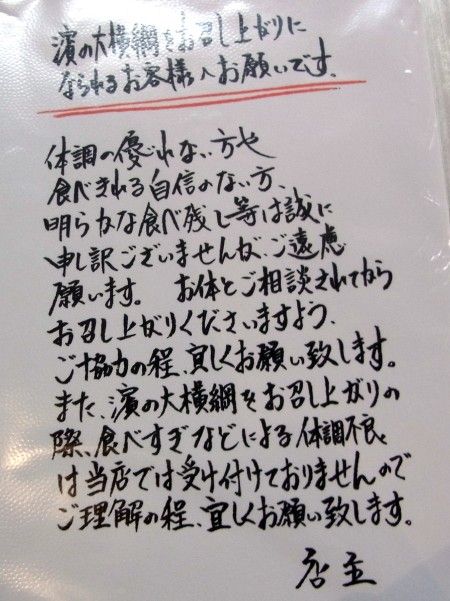 濱の大横綱をお召し上がりに
なられるお客様へお願いです。
体調の優れない方や
食べきれる自信のない方、
明らかな食べ残し等は誠に
申し訳ございませんが、ご遠慮
願います。 お体とご相談されてから
お召し上がりくださいますよう、
ご協力の程、宜しくお願い致します。
また、濱の大横綱をお召し上がりの
際、食べすぎなどによる体調不良
は当店では受け付けておりませんので
ご理解の程、宜しくお願い致します。
店主